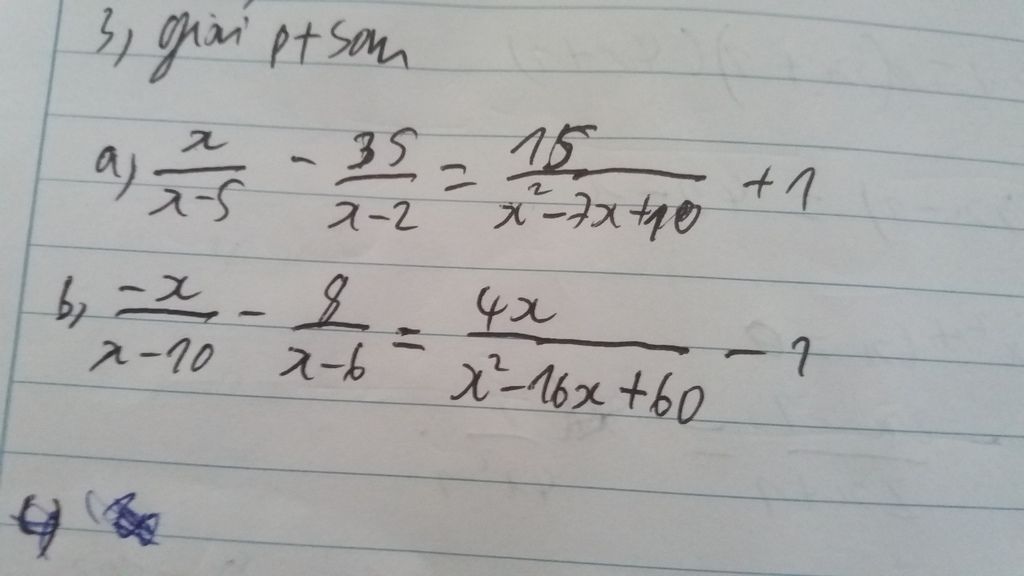 3, giải pt sau
a, x/(x-5) - 35/(x-2) = 15/(x²-7x+10) + 1
b, -x/(x-10) - 8/(x-6) = 4x/(x²-16x+60) - 1
c)